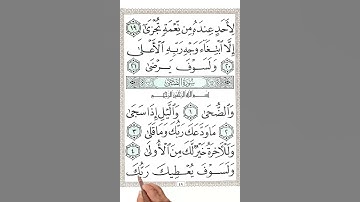 لِأَحَدٍ عِندَهُۥ مِن نِّعْمَةٍ تُجْزَىٰٓ ١٩
إِلَّا ٱبْتِغَآءَ وَجْهِ رَبِّهِ ٱلْأَعْلَىٰ
٢٠ وَلَسَوْفَ يَرْضَىٰ ٢١
سُورَةُ الضُّحَى
بِسْمِ ٱللَّهِ ٱلرَّحْمَٰنِ ٱلرَّحِيمِ
وَٱلضُّحَىٰ ١ وَٱلَّيْلِ إِذَا سَجَىٰ
٢ مَا وَدَّعَكَ رَبُّكَ وَمَا قَلَىٰ ٣
وَلَلْءَاخِرَةُ خَيْرٌ لَّكَ مِنَ ٱلْأُولَىٰ ٤
وَلَسَوْفَ يُعْطِيكَ رَبُّكَ